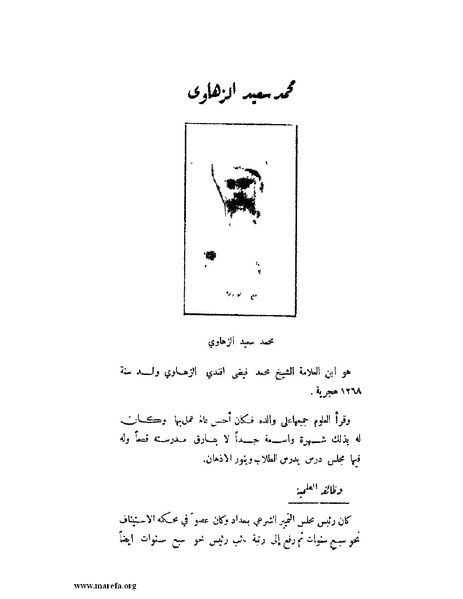 محمد سعيد الزهاوى
محمد سعيد الزهاوي
هو ابن العلامة الشيخ محمد فيضى افندي الزهاوي ولد سنة
١٢٦٨ هجرية .
وقرأ العلوم جميعها على والده فكان أحسن عمل بها وكان
له بذلك شهرة واسعة جداً لا يفارق مدرسته قصاً وله
فيها مجلس درس يدرس الطلاب وينور الاذهان.
وظائفه العلمية
كان رئيس مجلس التمييز الشرعي ببغداد وكان عضواً في محكمة الاستيناف
نحو سبع سنوات ثم رفع إلى رتبة رئيس نحو سبع سنوات ايضاً
www.marefa.org